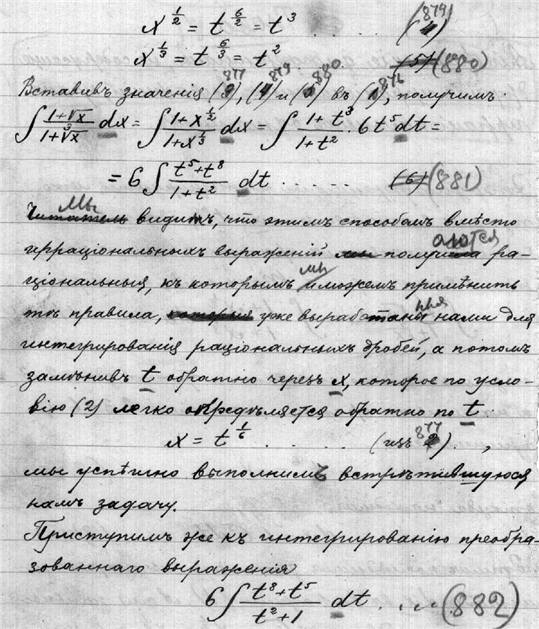 x^{1/2} = t^{6/2} = t^3 (879)
x^{1/3} = t^{6/3} = t^2 (880)
Вставивъ значенія (877), (879) и (880) въ (876), получимъ.
∫ (1+√x)/(1+∛x) dx = ∫ (1+x^{1/2})/(1+x^{1/3}) dx = ∫ (1+t^3)/(1+t^2) · 6t^5 dt =
= 6 ∫ (t^5+t^8)/(1+t^2) dt . . . . . (881)
Мы видимъ, что этимъ способомъ вмѣсто
ирраціональныхъ выраженій получаются ра-
ціональныя, къ которымъ мы можемъ примѣнить
тѣ правила, уже выработанныя нами для
интегрированія раціональныхъ дробей, а потомъ
замѣнивъ t обратно черезъ x, которое по усло-
вію (2) легко опредѣляется обратно по t.
x = t^{1/6} . . . . . (изъ 877) . ,
мы успѣшно выполнимъ встрѣтившуюся
намъ задачу.
Приступимъ же къ интегрированію преобра-
зованнаго выраженія
6 ∫ (t^8+t^5)/(t^2+1) dt. ... (882)